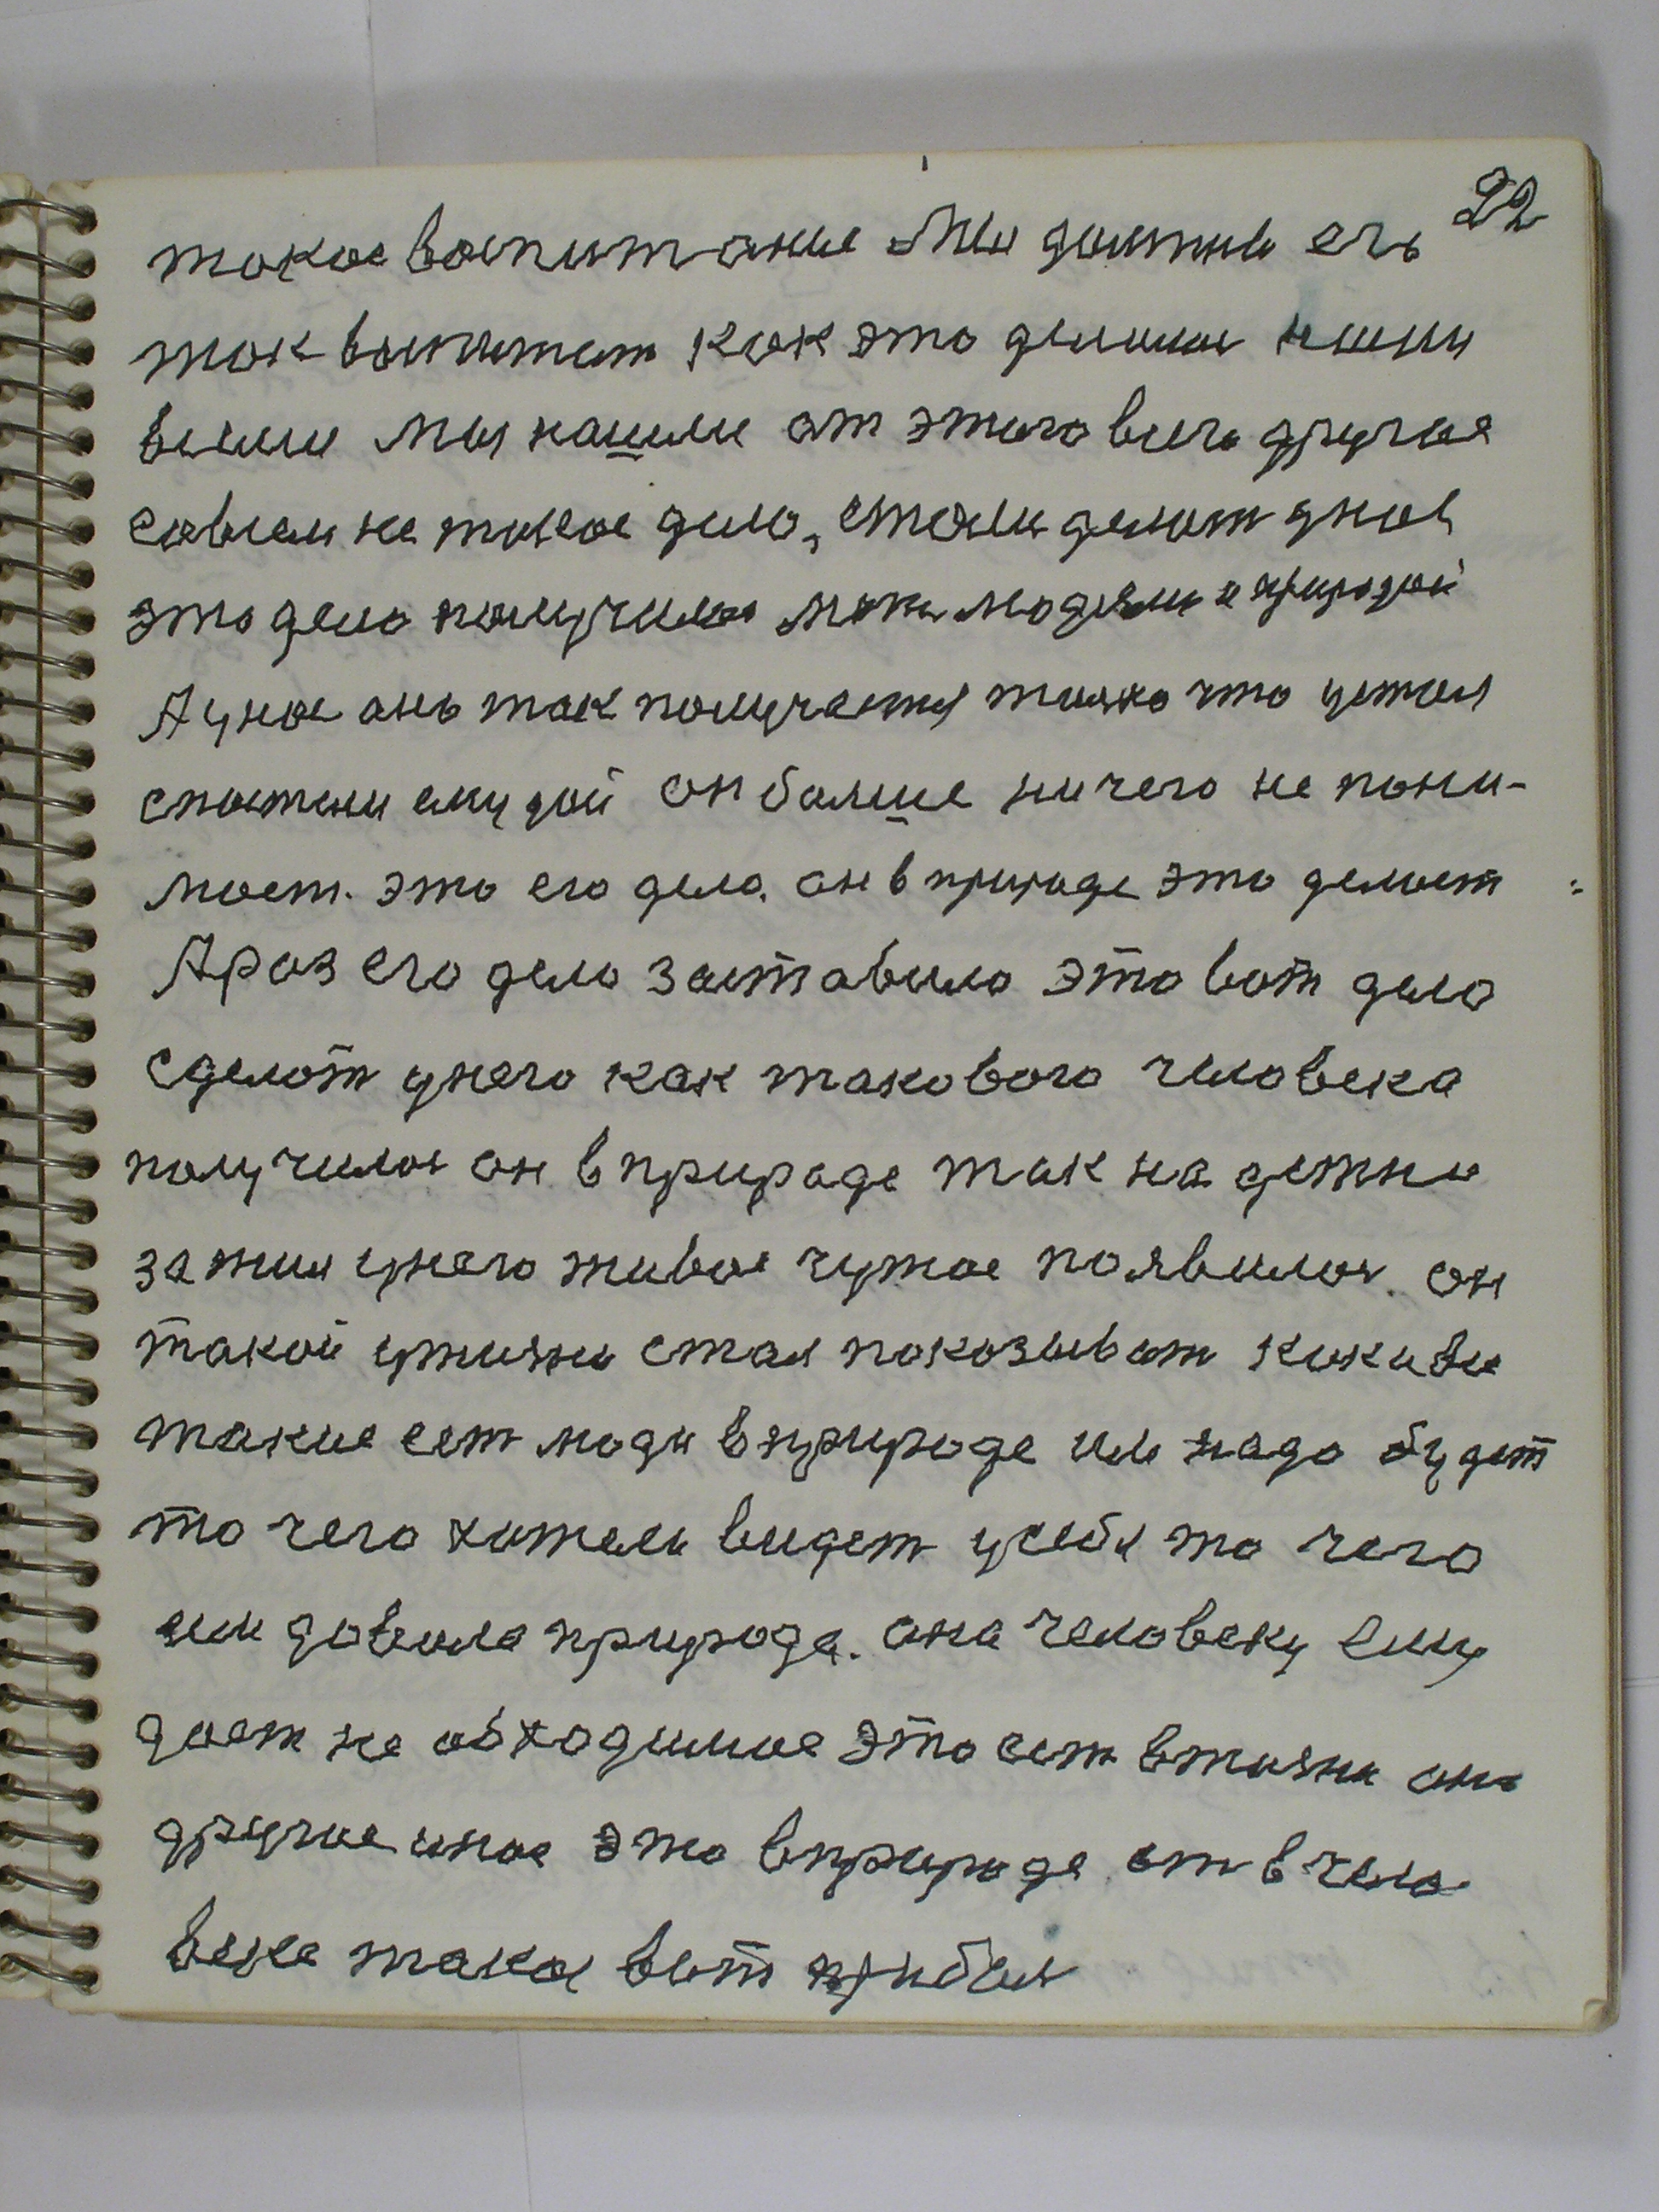 22
такое воспитание Мы должны его
так воспитат как это делали наши
вами Мы нашли от этого всего другое
совсем не такое дело, стали делат у нас
это дело получилос меж людями и природой
А у нас оно так получается толко что устал
спосteли ему дай он болше ничего не пони-
мает. это его дело. он в природе это делает
А раз его дело заставило это вот дело
сделат у него как такового человека
получилос он в природе так на
за жил у него живое чужое появилос. он
такой у жизни стал показыват каки вы
такие ест люди в природе им надо будет
то чего хотели видет у себя то чего
им давала природа. она человеку ему
дает не обходимое это ест в жизни оно
другое иное это в природе ест в чело
веке такое вот